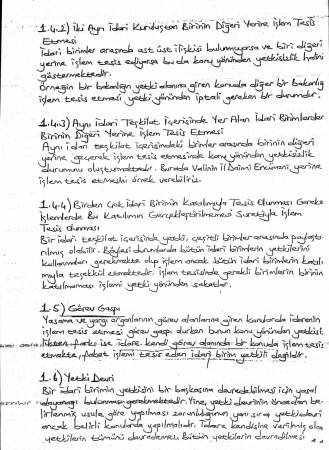 1.4.2) İki Ayrı İdari Kuruluştan Birinin Diğeri Yerine İşlem Tesis
Etmesi
İdari birimler arasında ast üst ilişkisi bulunmuyorsa ve biri diğeri
yerine işlem tesis ediyorsa bu da konu yönünden yetkisizlik halini
göstermektedir.
Örneğin bir bakanlığın yetki alanına giren konuda diğer bir bakanlığın
işlem tesis etmesi yetki yönünden iptali gereken bir durumdur.
1.4.3) Aynı İdari Teşkilat İçerisinde Yer Alan İdari Birimlerden
Birinin Diğeri Yerine İşlem Tesis Etmesi
Aynı idari teşkilat içerisindeki birimler arasında birinin diğeri
yerine geçerek işlem tesis etmesinde konu yönünden yetkisizlik
durumunu oluşturmaktadır. Burada Valinin İl Daimi Encümeni yerine
işlem tesis etmesini örnek verebiliriz.
1.4.4) Birden Çok İdari Birimin Katılımıyla Tesis Olunması Gereken
İşlemlerde Bu Katılımın Gerçekleştirilmemesi Suretiyle İşlem
Tesis Olunması
Bir idari teşkilat içerisinde yetki, çeşitli birimler arasında paylaştı-
rılmış olabilir. Böylesi durumlarda bütün idari birimlerin yetkilerini
kullanmaları gerekmekte olup işlem ancak bütün idari birimlerin katılı-
mıyla teşekkül etmektedir. İşlem tesisinde gerekli birimlerin birinin
katılmaması işlemi yetki yönünden sakatlar.
1.5) Görev Gaspı
Yasama ve yargı organlarının görev alanlarına giren konularda idarenin
işlem tesis etmesi görev gaspı durken bunun konu yönünden yetkisiz-
likten farkı ise idare kendi görev alanında bir konuda işlem tesis
etmekte, fakat işlemi tesis eden idari birim yetkili değildir.
1.6) Yetki Devri
Bir idari birimin yetkisini bir başkasına devredebilmesi için yasal
dayanağı bulunması gerekmektedir. Yine, yetki devrinin önceden be-
lirlenmiş usule göre yapılması zorunluluğunun yanı sıra yetki devri
ancak belirli konularda yapılmalıdır. İdare kendisine verilmiş olan
yetkilerin tümünü devredemez. Bütün yetkilerin devredilmesi